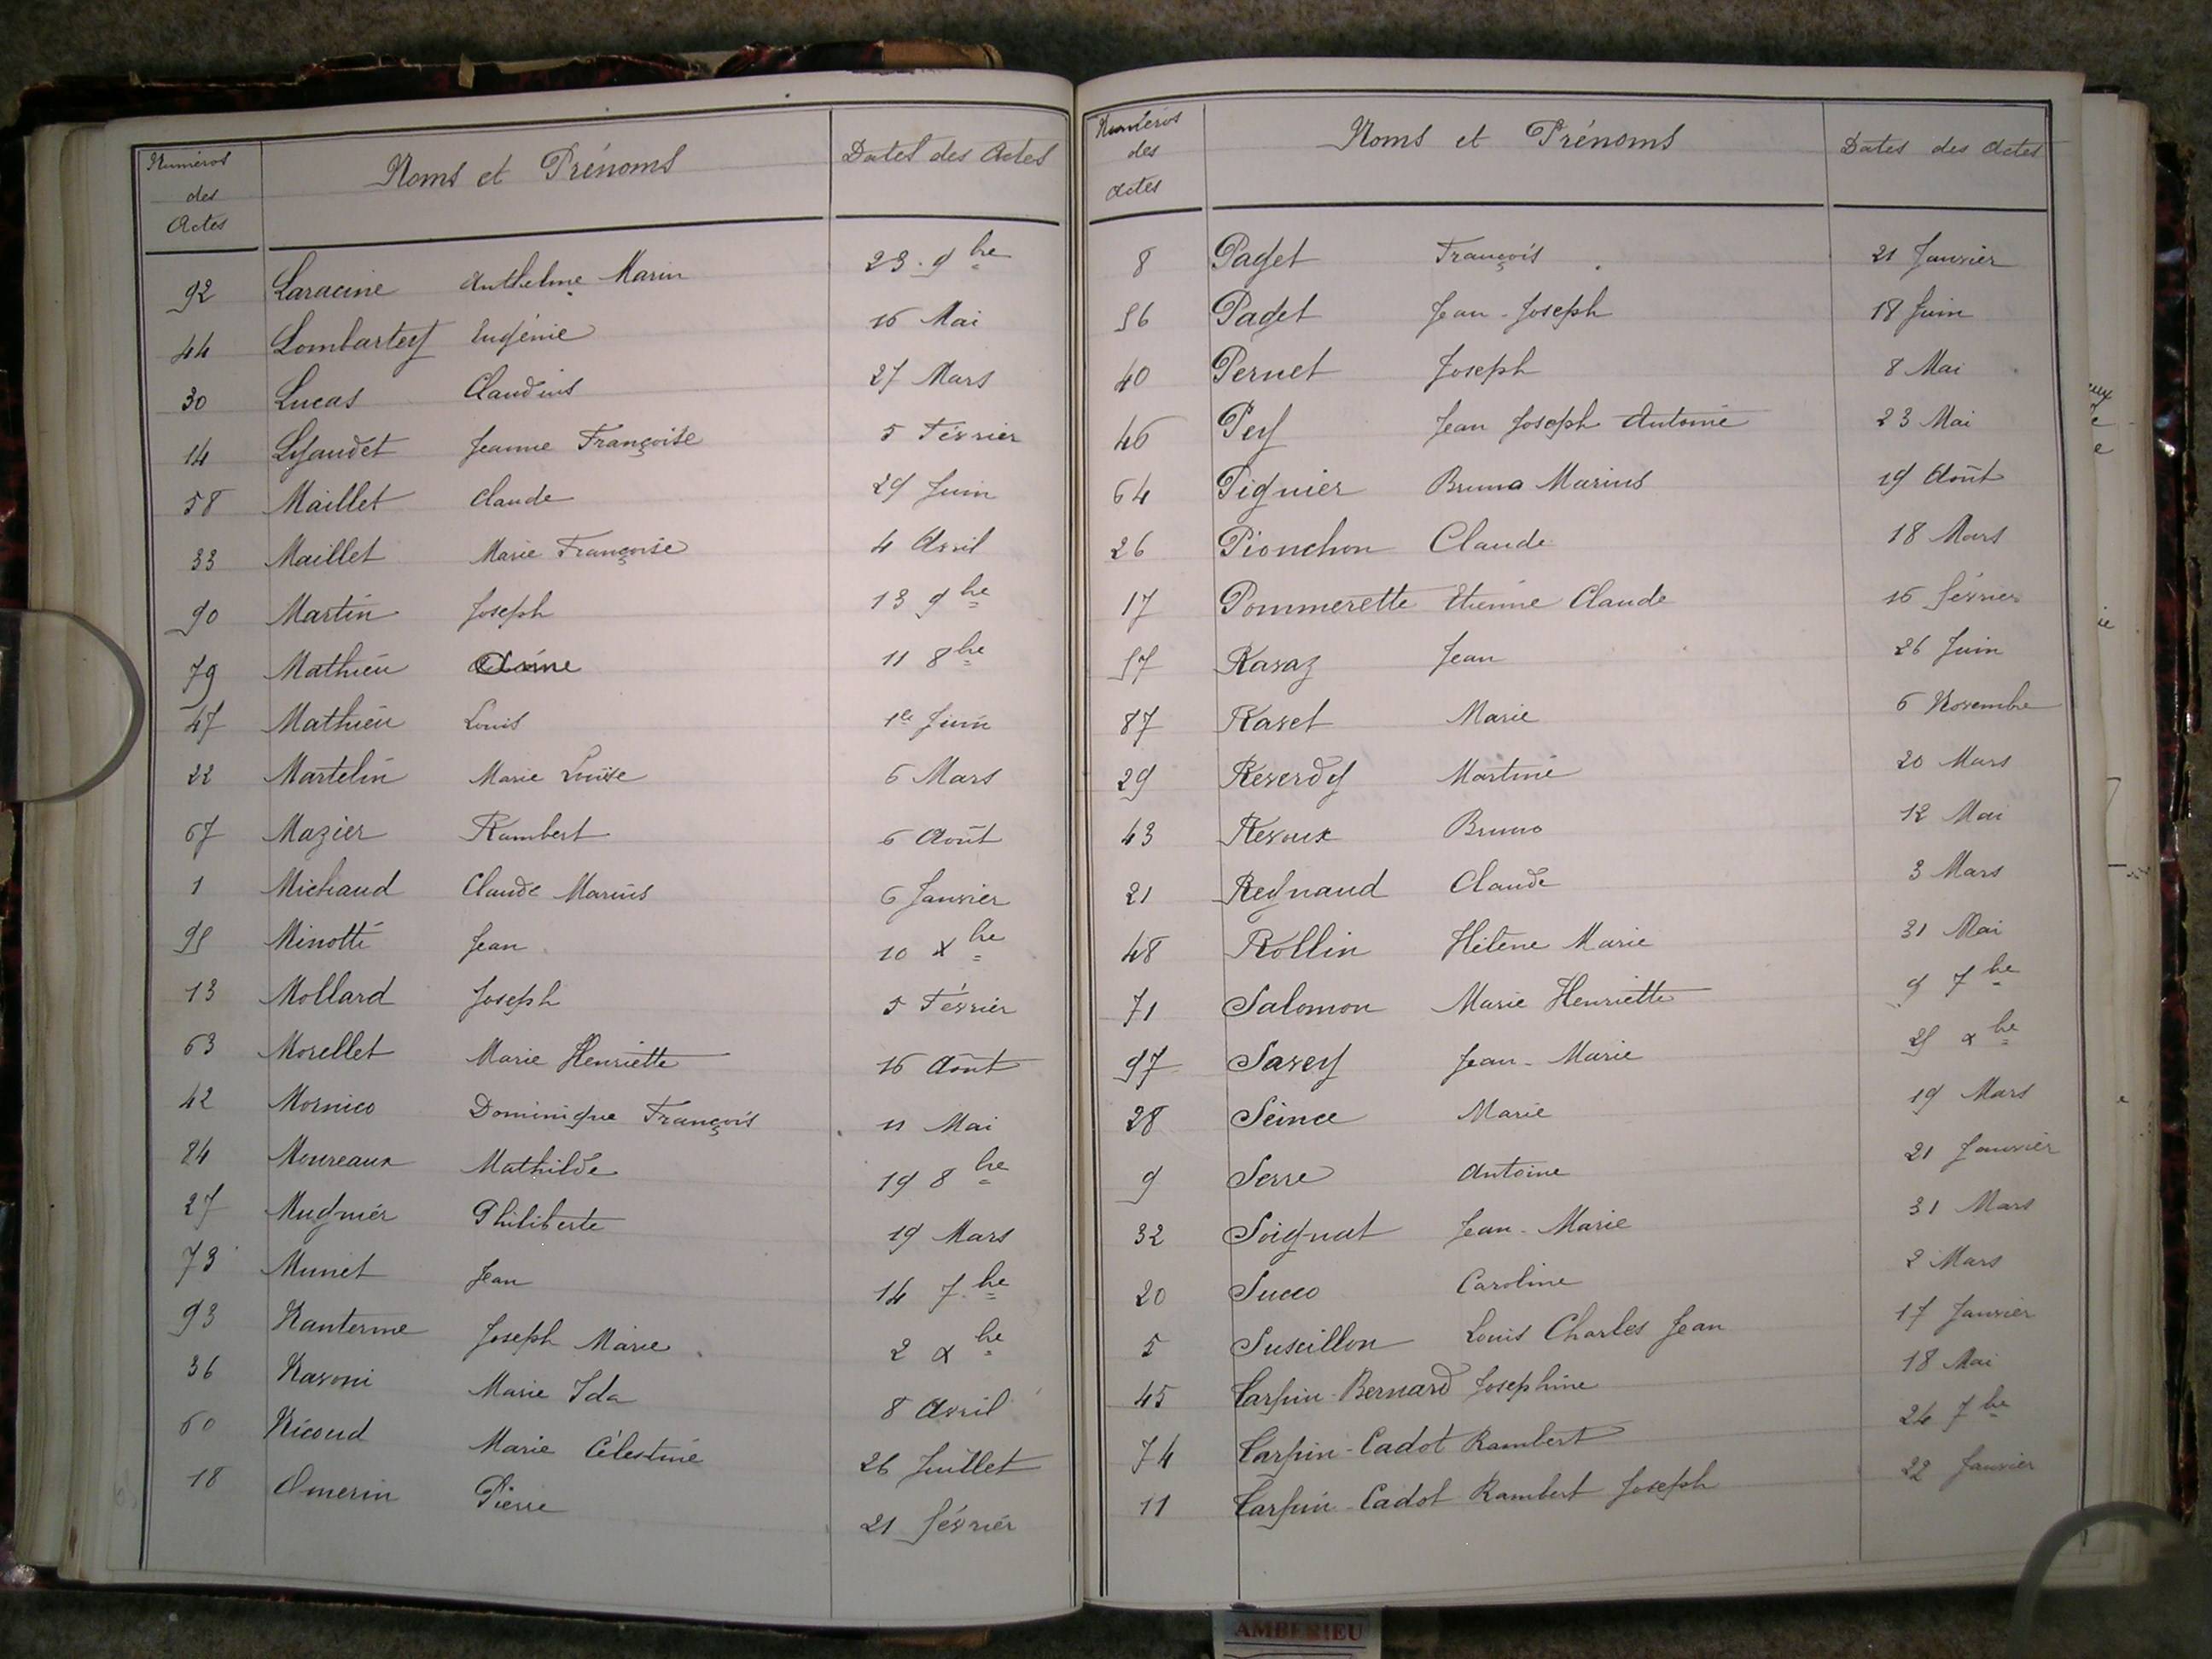 Numéros des Actes Noms et Prénoms Dates des Actes
92 Laracine Anthelme Marin 23 9bre
44 Lombartey Eugénie 16 Mai
30 Lucas Claudius 27 Mars
14 Lyaudet Jeanne Françoise 5 Février
58 Maillet Claude 29 Juin
33 Maillet Marie Françoise 4 Avril
90 Martin Joseph 13 9bre
79 Mathieu 11 8bre
47 Mathieu Louis 1er Juin
22 Martelin Marie Louise 6 Mars
67 Mazier Rambert 6 Août
1 Michaud Claude Marius 6 Janvier
95 Minotti Jean 10 xbre
13 Mollard Joseph 5 Février
63 Morellet Marie Henriette 16 Août
42 Mornico Dominique François 11 Mai
84 Moureaux Mathilde 19 8bre
27 Mugnier Philiberte 19 Mars
73 Munet Jean 14 7bre
93 Nanterme Joseph Marie 2 xbre
36 Navoni Marie Ida 8 Avril
60 Nicoud Marie Célestine 26 Juillet
18 Omerin Pierre 21 février
Numéros des Actes Noms et Prénoms Dates des Actes
8 Paget François 21 Janvier
56 Paget Jean-Joseph 18 Juin
40 Pernet Joseph 8 Mai
46 Pey Jean Joseph Antoine 23 Mai
64 Pignier Bruno Marius 19 Août
26 Pionchon Claude 18 Mars
17 Pommerette Etienne Claude 16 février
57 Ravaz Jean 26 Juin
87 Ravet Marie 6 Novembre
29 Reverdy Martine 20 Mars
43 Revoux Bruno 12 Mai
21 Reynaud Claude 3 Mars
48 Rollin Hélène Marie 31 Mai
71 Salomon Marie Henriette 9 7bre
97 Savey Jean-Marie 25 xbre
28 Seince Marie 19 Mars
9 Serre Antoine 21 Janvier
32 Soignat Jean-Marie 31 Mars
20 Succo Caroline 2 Mars
5 Suscillon Louis Charles Jean 17 Janvier
45 Tarpin-Bernard Josephine 18 Mai
74 Tarpin-Cadot Rambert 24 7bre
11 Tarpin-Cadot Rambert Joseph 22 Janvier
AMBERIEU